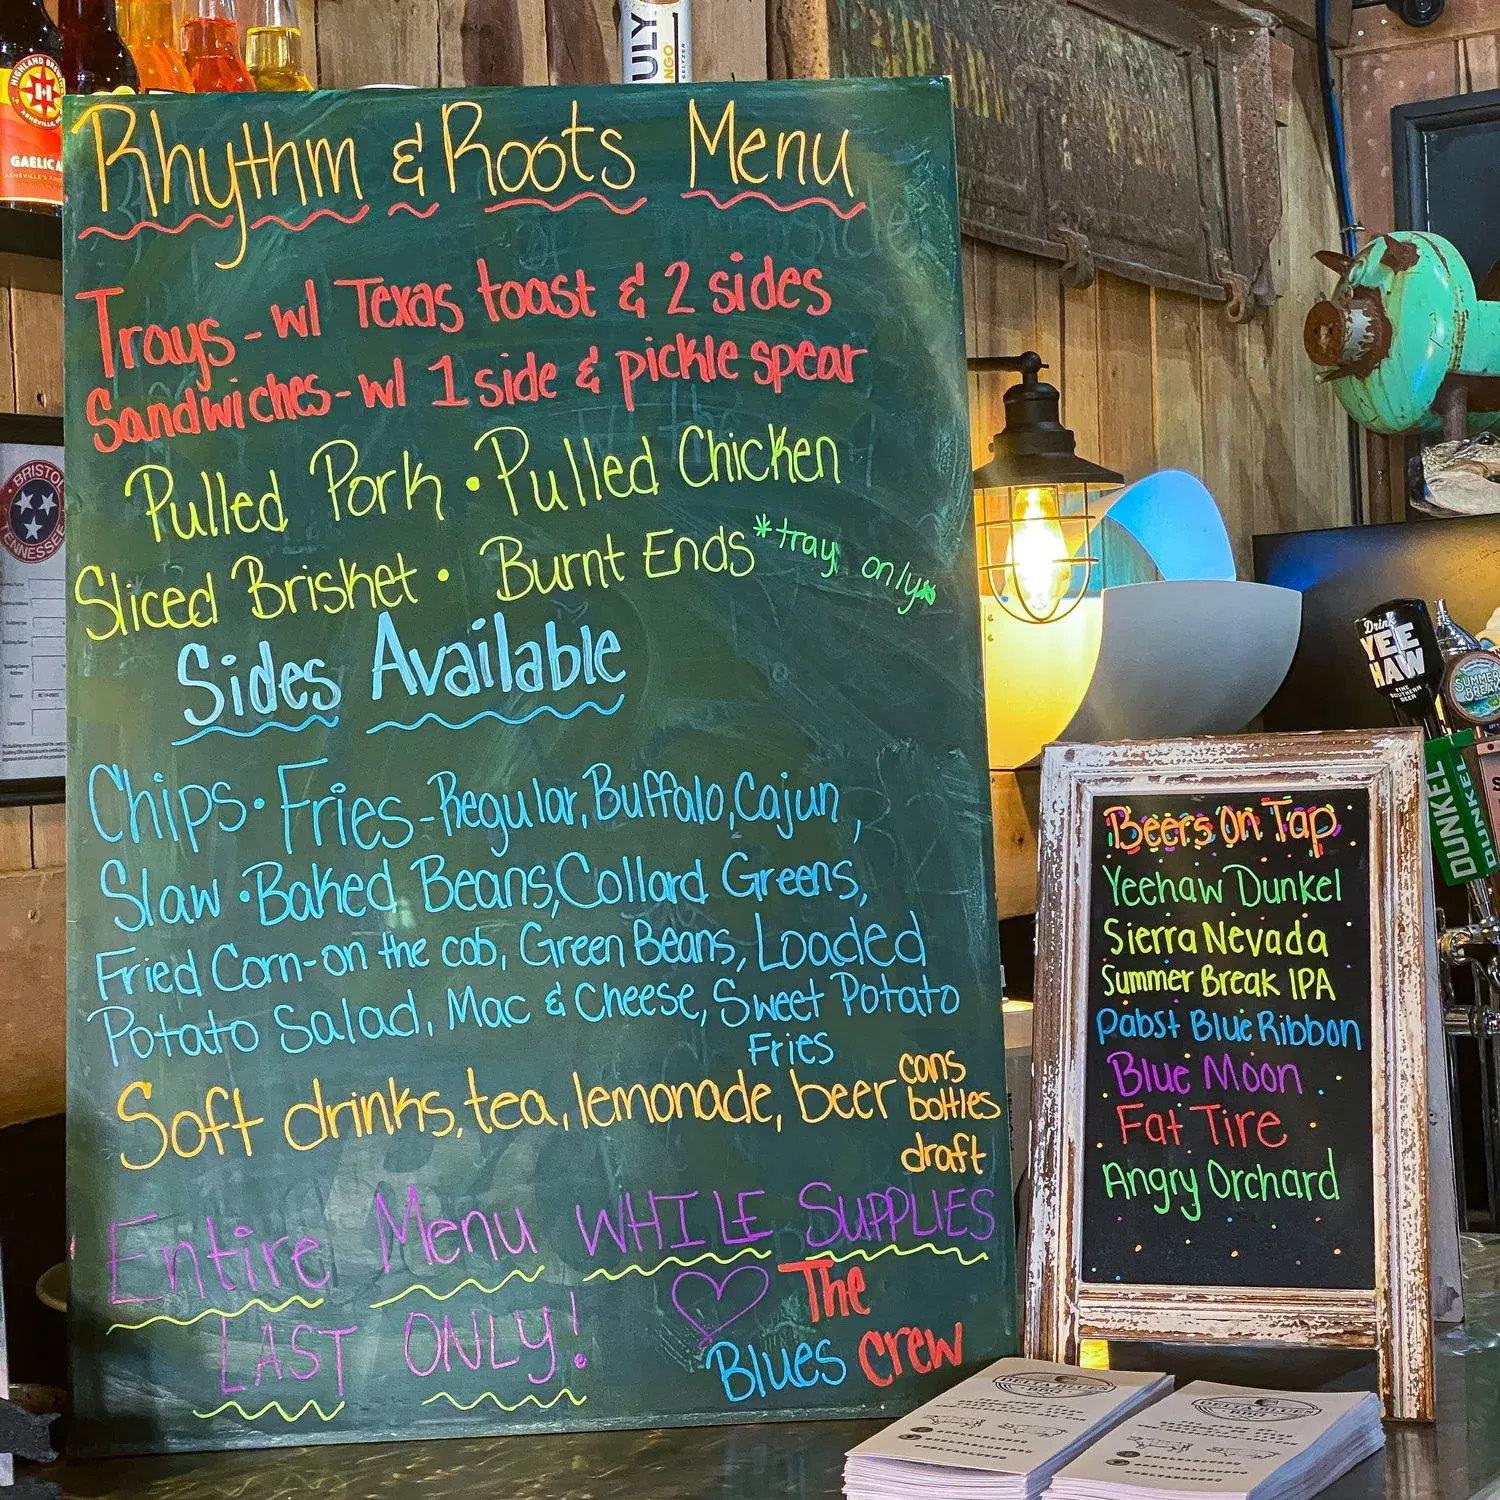 Rhythm & Roots Menu
Trays - w/ Texas toast & 2 sides
Sandwiches - w/ 1 side & pickle spear
Pulled Pork • Pulled Chicken
Sliced Brisket • Burnt Ends *tray only*
Sides Available
Chips • Fries - Regular, Buffalo, Cajun,
Slaw • Baked Beans, Collard Greens,
Fried Corn-on the cob, Green Beans, Loaded
Potato Salad, Mac & Cheese, Sweet Potato
Fries
Soft drinks, tea, lemonade, beer cans
bottles
draft
Entire Menu WHILE SUPPLIES
LAST ONLY!
The
Blues Crew
Beers On Tap
Yeehaw Dunkel
Sierra Nevada
Summer Break IPA
Pabst Blue Ribbon
Blue Moon
Fat Tire
Angry Orchard
HIGHLAND BREWING
ASHEVILLE, NC
GAELIC A
ULY
NGO
SELTZER
BRISTOL
TENNESSEE
Drink
YEE
HAW
FINE
SOUTHERN
BEER
SUMMER
BREAK
DUNKEL
DUNKEL